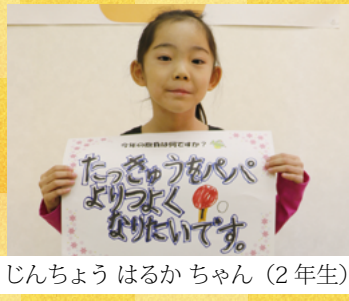 今年の抱負は何ですか？
たっきゅうをパパ
よりつよく
なりたいです。
じんちょう はるか ちゃん（2 年生）